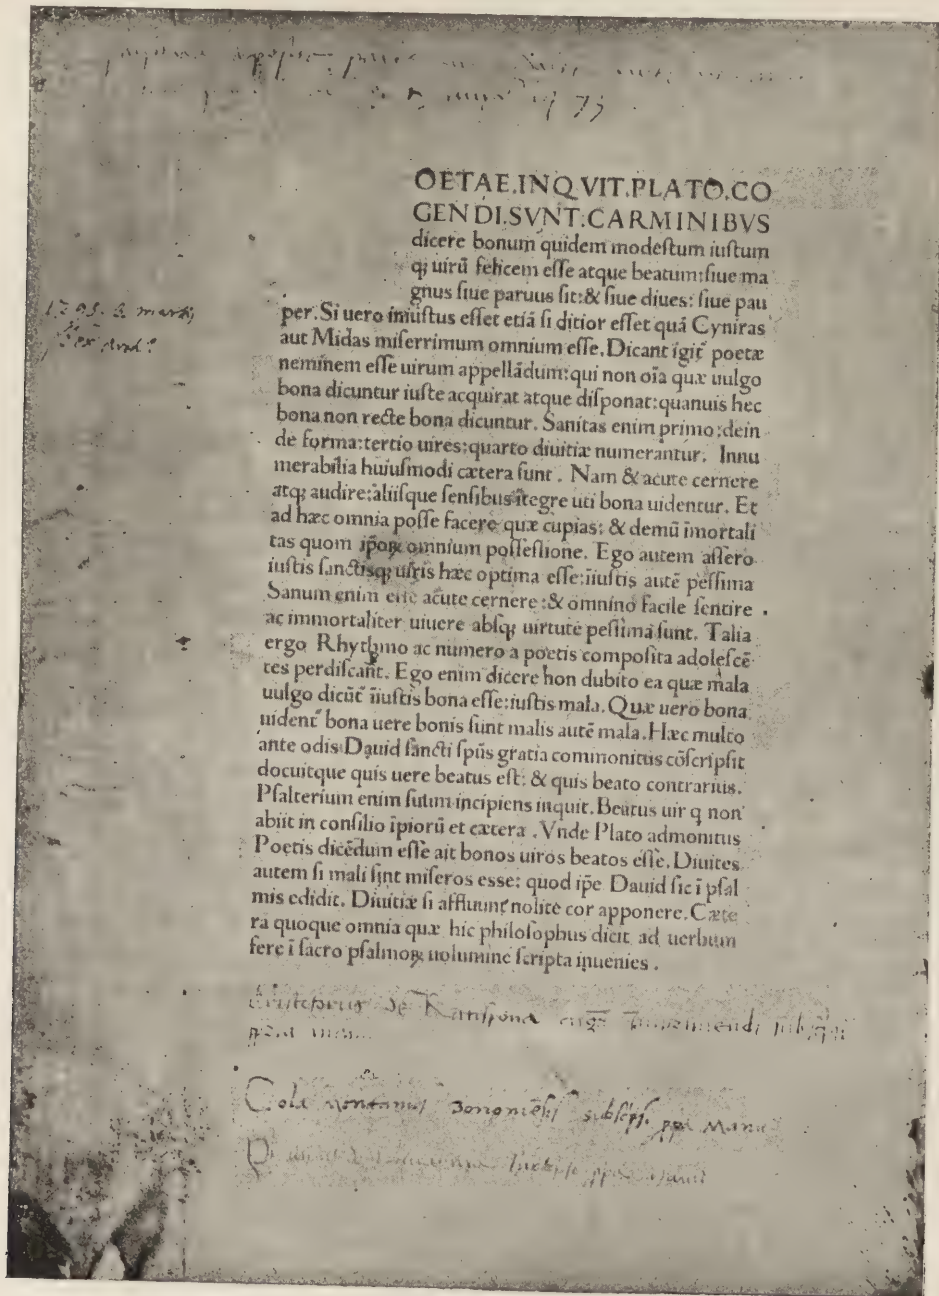 OETAE.INQVIT.PLATO.CO
GENDI.SVNT.CARMINIBVS
dicere bonum quidem modeſtum iuſtum
qꝫ uirū felicem eſſe atque beatum:ſiue ma
gnus ſiue paruus ſit:& ſiue diues: ſiue pau
per. Si uero iniuſtus eſſet etiā ſi ditior eſſet quā Cyniras
aut Midas miſerrimum omnium eſſe. Dicant igit᷑ poetæ
neminem eſſe uirum appellādum:qui non oīa quæ uulgo
bona dicuntur iuſte acquirat atque diſponat:quanuis hec
bona non recte bona dicuntur. Sanitas enim primo:dein
de forma:tertio uires:quarto diuitiæ numerantur. Innu
merabilia huiuſmodi cætera ſunt . Nam & acute cernere
atqꝫ audire:aliiſque ſenſibus ītegre uti bona uidentur. Et
ad hæc omnia poſſe facere quæ cupias: & demū īmortali
tas quom ip̄oꝝ omnium poſſeſſione. Ego autem aſſero
iuſtis ſanctisqꝫ uiris hæc optima eſſe:īiuſtis autē peſſima
Sanum enim eſſe acute cernere :& omnino facile ſentire .
ac immortaliter uiuere abſqꝫ uirtute peſſima ſunt. Talia
ergo Rhythmo ac numero a poetis compoſita adoleſcē
tes perdiſcant. Ego enim dicere non dubito ea quæ mala
uulgo dicūt᷑ īiuſtis bona eſſe:iuſtis mala. Quæ uero bona
uident᷑ bona uere bonis ſunt malis autē mala. Hæc multo
ante odis Dauid ſancti ſpūs gratia commonitus cōſcripſit
docuitque quis uere beatus eſt: & quis beato contrarius.
Pſalterium enim ſuum incipiens inquit. Beatus uir q non
abiit in conſilio īpiorū et cætera . Vnde Plato admonitus
Poetis dicēdum eſſe ait bonos uiros beatos eſſe. Diuites
autem ſi mali ſint miſeros esse: quod ip̄e Dauid ſic ī pſal
mis edidit. Diuitiæ ſi affluunt nolite cor apponere. Cæte
ra quoque omnia quæ hic philoſophus dicit ad uerbum
fere ī ſacro pſalmoꝝ uolumine ſcripta inuenies .
de Ratiſpona
Cola montanus Bononiēſis ſubſcripſi ppa Manu